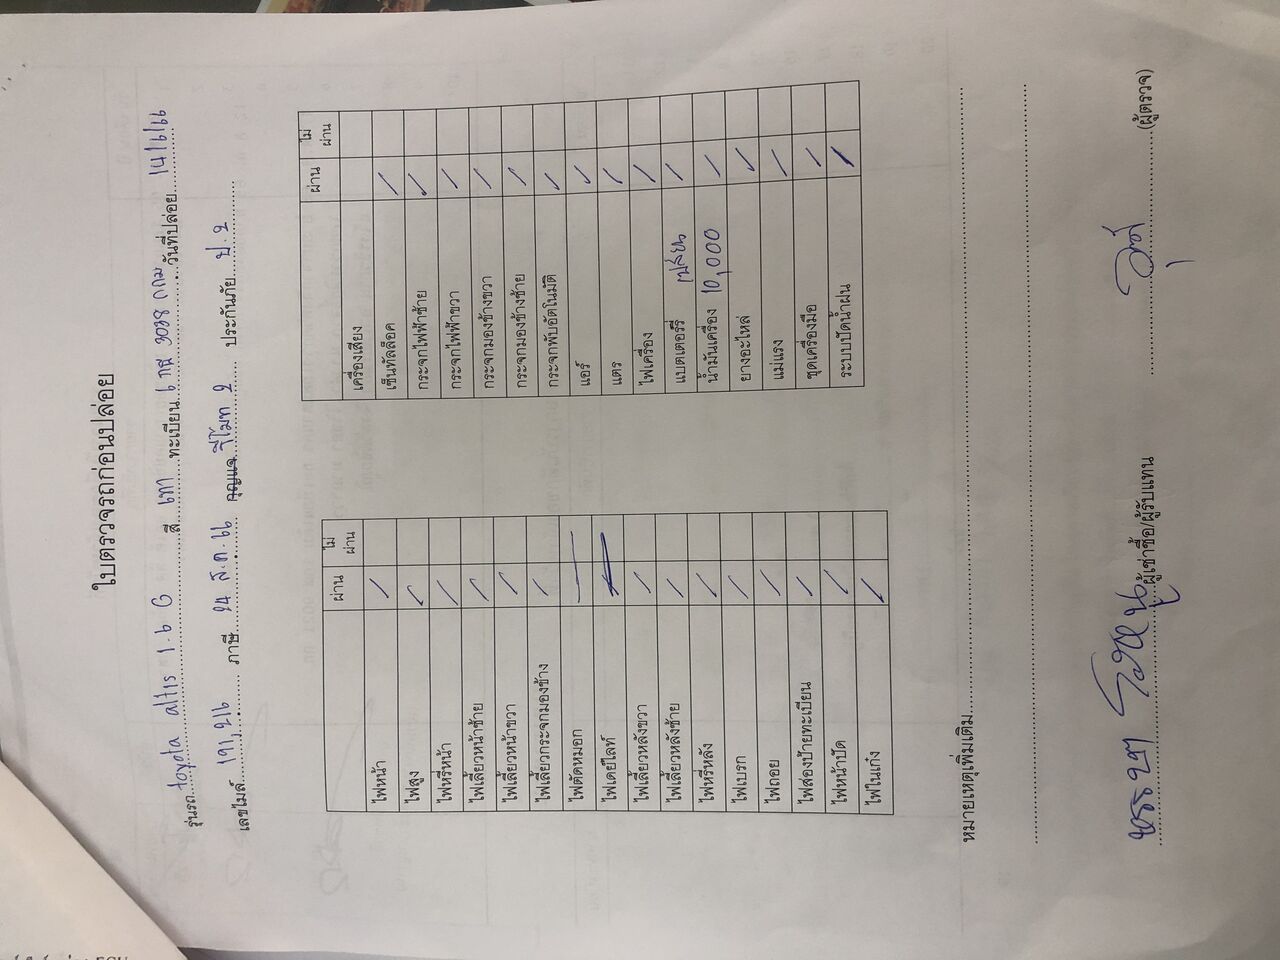 ใบตรวจรถก่อนปล่อย
รุ่นรถ....toyota altis 1.6 G......สี...เทา....ทะเบียน 6 กฬ 3038 กทม .วันที่ปล่อย...14/6/66
เลขไมล์...191,216..... ภาษี...24 ส.ค. 66 กุญแจ รีโมท 2..... ประกันภัย...ป. 2.......
ผ่าน ไม่ผ่าน
ไฟหน้า /
ไฟสูง /
ไฟหรี่หน้า /
ไฟเลี้ยวหน้าซ้าย /
ไฟเลี้ยวหน้าขวา /
ไฟเลี้ยวกระจกมองข้าง /
ไฟตัดหมอก —
ไฟเดย์ไลท์
ไฟเลี้ยวหลังขวา /
ไฟเลี้ยวหลังซ้าย /
ไฟหรี่หลัง /
ไฟเบรก /
ไฟถอย /
ไฟส่องป้ายทะเบียน /
ไฟหน้าปัด /
ไฟในเก๋ง /
ผ่าน ไม่ผ่าน
เครื่องเสียง
เซ็นทัลล็อค /
กระจกไฟฟ้าซ้าย /
กระจกไฟฟ้าขวา /
กระจกมองข้างขวา /
กระจกมองข้างซ้าย /
กระจกพับอัตโนมัติ /
แอร์ /
แตร /
ไฟเครื่อง /
แบตเตอร์รี่ เปลี่ยน /
น้ำมันเครื่อง 10,000 /
ยางอะไหล่ /
แม่แรง /
ชุดเครื่องมือ /
ระบบปัดน้ำฝน /
หมายเหตุเพิ่มเติม
ผู้เช่าซื้อ/ผู้รับแทน
(ผู้ตรวจ)